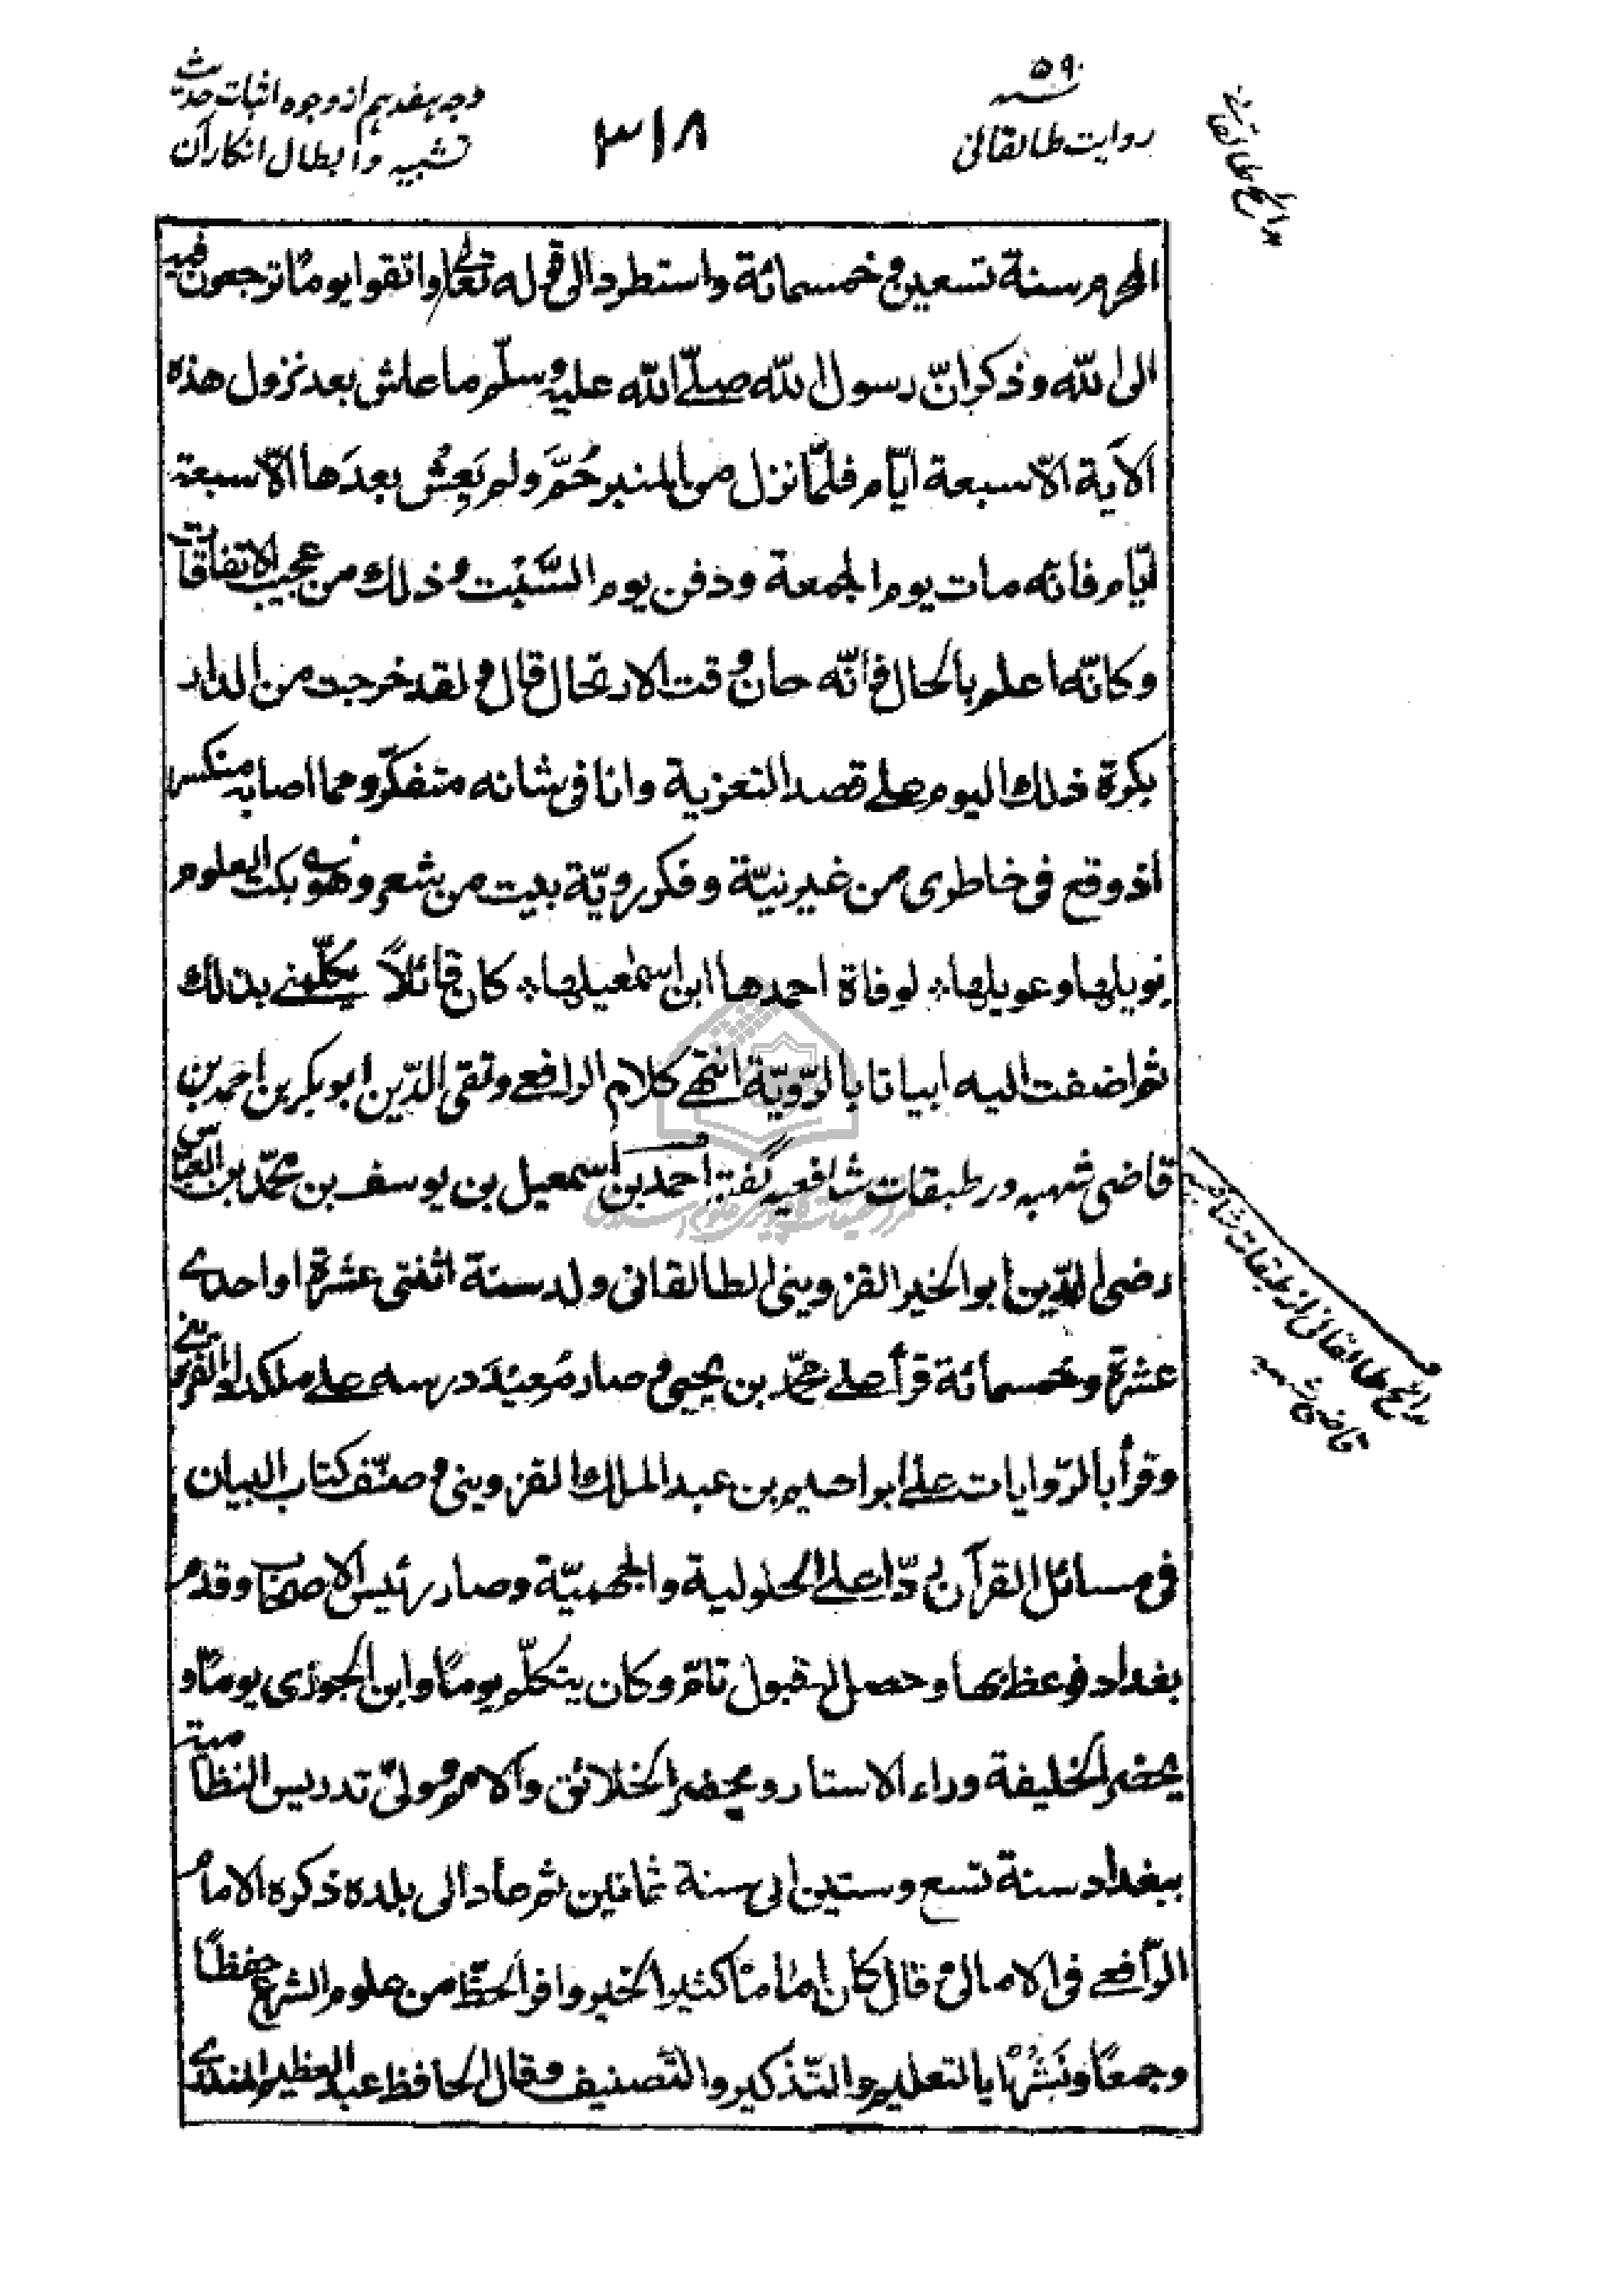 ۵۹۰
روایت طالقانی
۳۱۸
وجه هفدهم از وجوه اثبات حدیث
تشبیه وابطال انکار آن
مدائح طالقانی
المحرم سنة تسعین و خمسمائة واستطرد الی قوله تعالی واتقوا یومًا ترجعون فیه
الی الله وذکر انّ رسول الله صلّے الله علیه وسلّم ما عاش بعد نزول هذه
الآیة الّا سبعة ایّام فلمّا نزل من المنبر حُمَّ ولم یَعِشْ بعدَها الّا سبعة
ایّام فانّه مات یوم الجمعة ودفن یوم السَّبْت و ذلك من عجیب الاتفاقات
وکانّه اعلم بالحال فانّه حان وقت الارتحال قال و لقد خرجت من الدار
بکرة ذلك الیوم علے قصد التعزیة وانا فی شانه متفکّر ومما اصابه منکسر
اذ وقع فی خاطری من غیر نیّة وفکر رویّة بیت من شعر وهو ے بکت العلوم
بویلها وعویلها ٭ لوفاة احمدها ابن اسمعیلها ٭ کان قائلًا یکلّمنے بذلك
ثم اضفت الیه ابیاتا بالرّویّة انتهے کلام الرافعے وتقی الدّین ابو بکر بن احمد بن
قاضی شهبه در طبقات شافعیه گفته احمد بن اسمعیل بن یوسف بن محمّد بن العبّاس
رضی الدّین ابو الخیر القزوینی الطالقانی ولد سنة اثنتی عشرة او احدے
عشرة وخمسمائة قرأ علے محمّد بن یحیی و صار مُعیْدَ درسه و علے ملکداد القزوینے
وقرأ بالرّوایات علے ابراهیم بن عبد الملك القزوینی و صنّف کتاب البیان
فی مسائل القرآن ردّا علے الحلولیة والجهمیّة وصار رئیس الاصحاب وقدم
بغداد فوعظ بها وحصل له قبول تامّ وکان یتکلّم یومًا وابن الجوزی یومًا و
یحضر الخلیفة وراء الاستار ویحضر الخلائق والامم و ولیّ تدریس النظامیة
ببغداد سنة تسع وستین الی سنة ثمانین ثم عاد الی بلده ذکره الامام
الرّافعے فی الامالی و قال کان إمامًا کثیر الخیر وافر الحظّ من علوم الشرع حفظًا
وجمعًا ونَشْرًا بالتعلیم والتّذکیر والتّصنیف وقال الحافظ عبد العظیم المنذرے
مدائح طالقانی از طبقات شافعیه
قاضی شهبه